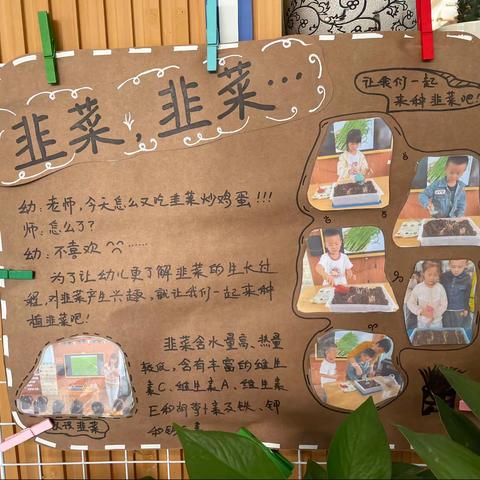 韭菜，韭菜…
让我们一起
来种韭菜吧！
幼：老师，今天怎么又吃韭菜炒鸡蛋！！！
师：怎么了？
幼：不喜欢……
为了让幼儿更了解韭菜的生长过
程，对韭菜产生兴趣，就让我们一起来种
植韭菜吧！
韭菜含水量高、热量
较低，含有丰富的维生
素C、维生素A、维生素
E和胡萝卜素及铁、钾
和
认识韭菜